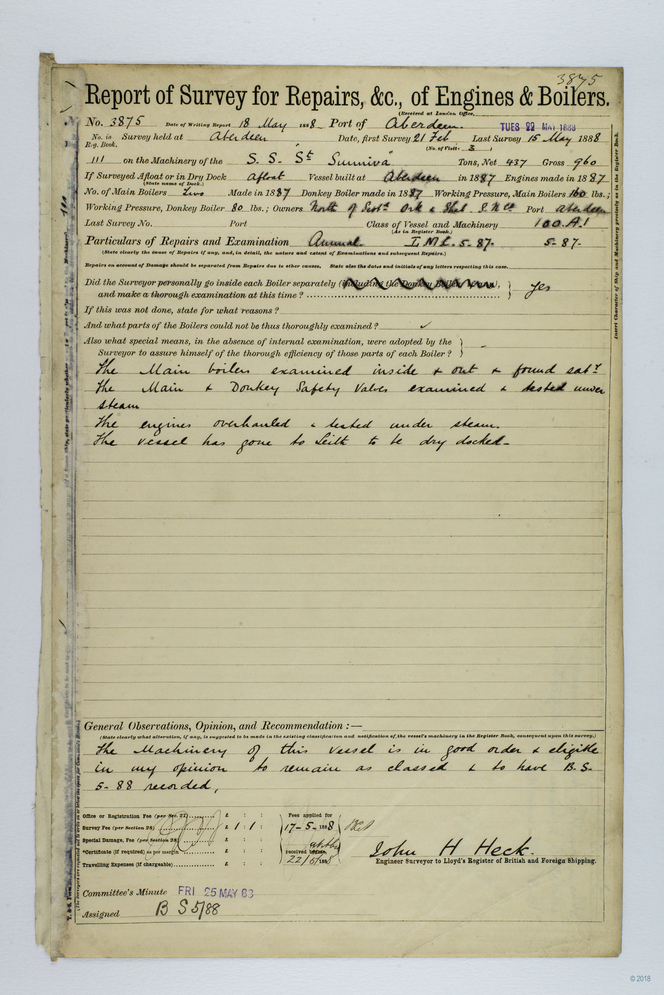 3875
Report of Survey for Repairs, &c., of Engines & Boilers.
(Received at London Office,
No. 3875 Date of Writing Report 18 May 1888 Port of Aberdeen. TUES 22 MAY 1888
No. in Reg. Book. Survey held at Aberdeen Date, first Survey 21 Feb Last Survey 15 May 1888
(No. of Visits 3)
111 on the Machinery of the S. S. St Sunniva Tons, Net 437 Gross 960
If Surveyed Afloat or in Dry Dock Afloat Vessel built at Aberdeen in 1887 Engines made in 1887
(State name of Dock.)
No. of Main Boilers Two Made in 1887 Donkey Boiler made in 1887 Working Pressure, Main Boilers 160 lbs.;
Working Pressure, Donkey Boiler 80 lbs.; Owners North of Scotd. Ork & Shet. S. N Co. Port Aberdeen
Last Survey No. Port Class of Vessel and Machinery 100.A.1
(As in Register Book.)
Particulars of Repairs and Examination Annual. L M C. 5. 87. 5-87-
(State clearly the cause of Repairs if any, and, in detail, the nature and extent of Examinations and subsequent Repairs.)
Repairs on account of Damage should be separated from Repairs due to other causes. State also the dates and initials of any letters respecting this case.
Did the Surveyor personally go inside each Boiler separately (including the Donkey Boiler
and make a thorough examination at this time? yes
If this was not done, state for what reasons?
And what parts of the Boilers could not be thus thoroughly examined? ✓
Also what special means, in the absence of internal examination, were adopted by the
Surveyor to assure himself of the thorough efficiency of those parts of each Boiler? -
The Main boilers examined inside & out & found saty.
The Main & Donkey Safety Valves examined & tested under
steam
The engines overhauled & tested under steam.
The vessel has gone to Leith to be dry docked-
General Observations, Opinion, and Recommendation:—
(State clearly what alteration, if any, is suggested to be made in the existing classification and notification of the vessel's machinery in the Register Book, consequent upon this survey.)
The Machinery of this vessel is in good order & eligible
in my opinion to remain as classed & to have B.S.
5-88 recorded,
Office or Registration Fee (per Sec. 27) £ : : Fees applied for
Survey Fee (per Section 28) £ 1 : 1 : 17-5-1888
Special Damage, Fee (per Section 28) £ : :
*Certificate (if required) as per margin £ : : received
Travelling Expenses (if chargeable) £ : : 22/5/1888
John H Heck.
Engineer Surveyor to Lloyd's Register of British and Foreign Shipping.
Committee's Minute FRI 25 MAY 88
Assigned B S 5/88
© 2018